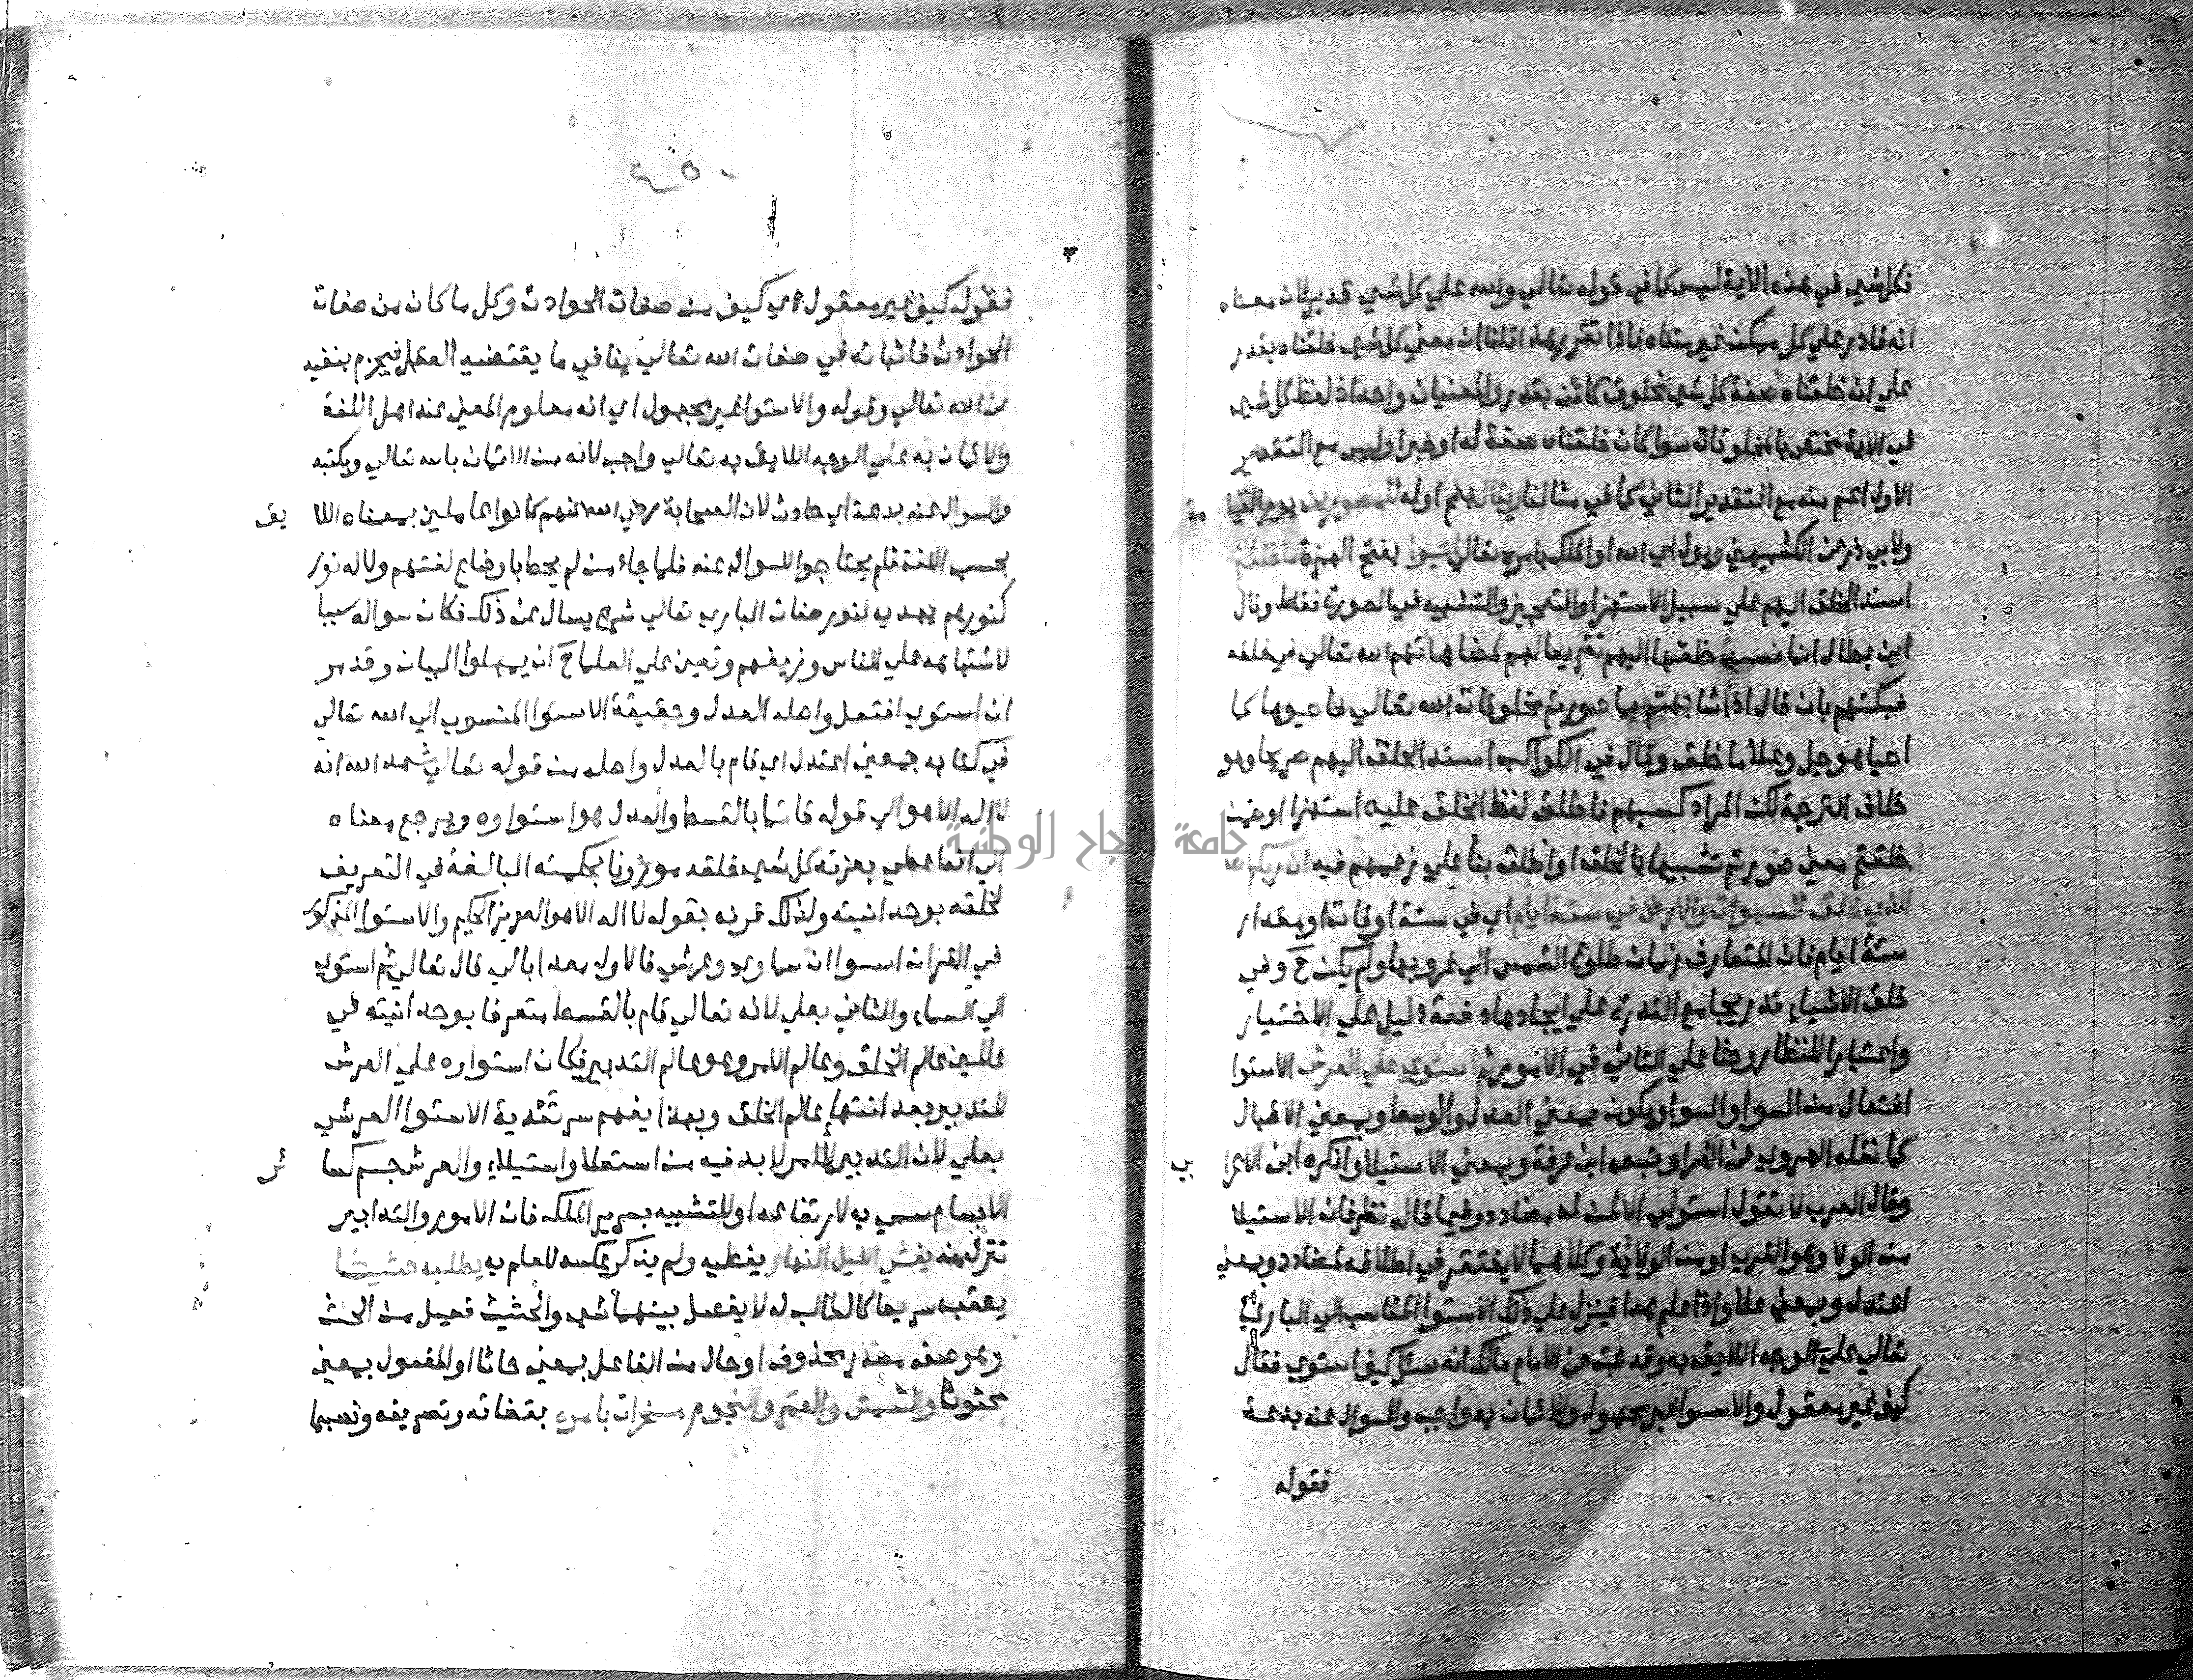 فكل شي في هذه الاية ليس كما في قوله تعالي والله علي كل شي قدير لان معناه
انه قادر علي كل ممكن غير متناه فاذا تقرر هذا قلنا ان معني كل شي خلقناه بقدر
علي ان خلقناه صفة كل شي مخلوق كائن بقدر والمعنيان واحد اذ لفظ كل شي
في الاية مختص بالمخلوقات سوا كان خلقناه صفة له او خبرا وليس مع التقدير
الاول اعم منه مع التقدير الثاني كما في مثالنا يقال بضم اوله للمصورين يوم القيا مة
ولابي ذر عن الكشميهني ويقول اي الله او الملك بامره تعالي احيوا بفتح الهمزة ما خلقتم
اسند الخلق اليهم علي سبيل الاستهزا والتعجيز والتشبيه في الصورة فقط وقال
ابن بطال انما نسب خلقها اليهم تقريعا لهم لمضاهاتهم الله تعالي في خلقه
فبكتهم بان قال اذا شابهتم بما صورتم مخلوقات الله تعالي فاحيوها كما
احياها هو جل وعلا ما خلق وقال في الكواكب اسند الخلق اليهم صريحا وهو
خلاف الترجمة لكن المراد كسبهم فاطلق لفظ الخلق عليه استهزا او ضمن
خلقتم معني صورتم تشبيها بالخلق او اطلق بنا علي زعمهم فيه ان ربكم الله
الذي خلق السموات والارض في ستة ايام اي في ستة اوقات او مقدار
ستة ايام فان المتعارف زمان طلوع الشمس الي غروبها ولم يكن ح وفي
خلق الاشياء تدريجا مع القدرة علي ايجادها دفعة دليل علي الاختيار
واعتبار للنظار وحثا علي التاني في الامور ثم استوي علي العرش الاستوا
افتعال من السوا والسوا يكون بمعني العدل والوسط وبمعني الاقبال
كما نقله الهروي عن الفرا وتبعه ابن عرفة وبمعني الاستيلا وانكره ابن الاعرا بي
وقال العرب لا تقول استولي الا لمن له مضادد وفيما قاله نظر فان الاستيلا
من الولا وهو القرب او من الولاية وكلاهما لا يفتقر في اطلاقه لمضادد وبمعني
اعتدل وبمعني علا واذا علم هذا فينزل علي ذلك الاستوا المناسب الي الباري
تعالي علي الوجه اللايق به وقد ثبت عن الامام مالك انه سئل كيف استوي فقال
كيف غير معقول والاستوا غير مجهول والايمان به واجب والسوال عنه بدعة
فقوله
٤٥٠
فقوله كيف غير معقول اي كيف من صفات الحوادث وكل ما كان من صفات
الحوادث فاثباته في صفات الله تعالي ينافي ما يقتضيه العقل فيجزم بنفيه
عن الله تعالي وقوله والاستوا غير مجهول اي انه معلوم المعني عند اهل اللغة
والايمان به علي الوجه اللايق به تعالي واجب لانه من الايمان بالله تعالي وبكتبه
والسوال عنه بدعة اي حادث لان الصحابة رضي الله عنهم كانوا عالمين بمعناه اللا يق
بحسب اللغة فلم يحتاجوا للسوال عنه فلما جاء من لم يحط باوضاع لغتهم ولا له نور
كنورهم يهديه لنور صفات الباري تعالي شرع يسال عن ذلك فكان سواله سببا
لاشتباهه علي الناس وزيغهم وتعين علي العلما ح ان يهملوا البيان وقد مر
ان استوي افتعل واصله العدل وحقيقة الاستوا المنسوب الي الله تعالي
في كتابه بمعني اعتدل اي قام بالعدل واصله من قوله تعالي شهد الله انه
لا اله الا هو الي قوله قائما بالقسط والعدل هو استواوه ويرجع معناه
الي انه اعطي بعزته كل شي خلقه موزونا بحكمته البالغة في التعريف
لخلقه بوحدانيته ولذلك قرنه بقوله لا اله الا هو العزيز الحكيم والاستوا المذكور
في القران استواان سماوي وعرشي فالاول معدا بالي قال تعالي ثم استوي
الي السماء والثاني بعلي لانه تعالي قام بالقسط متعرفا بوحدانيته في
عالمين عالم الخلق وعالم الامر وهو عالم التدبير فكان استواوه علي العرش
للتدبير بعد انتهاء عالم الخلق وبهذا يفهم سر تعدية الاستوا العرشي
بعلي لان التدبير للامر لا بد فيه من استعلا واستيلاء والعرش جسم كسا ئر
الاجسام سمي به لارتفاعه او للتشبيه بسرير الملك فان الامور والتدابير
تنزل منه يغشي الليل النهار يغطيه ولم يذكر عكسه للعلم به يطلبه حثيثا
يعقبه سريعا كالطالب له لا يفصل بينهما شي والحثيث فعيل من الحث
وهو صفة مصدر محذوف او حال من الفاعل بمعني حاثا او المفعول بمعني
محثوثا والشمس والقمر والنجوم مسخرات بامره بقضائه وتصريفه ونصبها